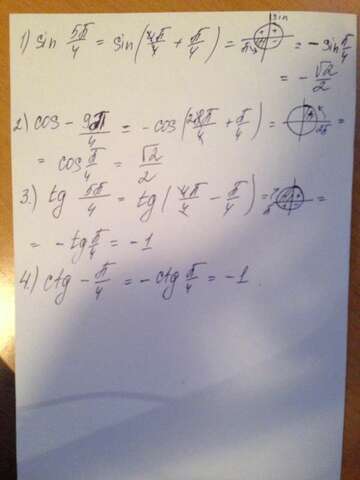 sin
1) sin 5π/4 = sin(4π/4 + π/4) = = - sin π/4
= - √2/2
2) cos - 9π/4 = - cos( π/4 + π/4) = 2π =
= cos π/4 = √2/2
3.) tg 5π/4 = tg(4π/4 - π/4) = =
= - tg π/4 = -1
4.) ctg - π/4 = - ctg π/4 = -1.